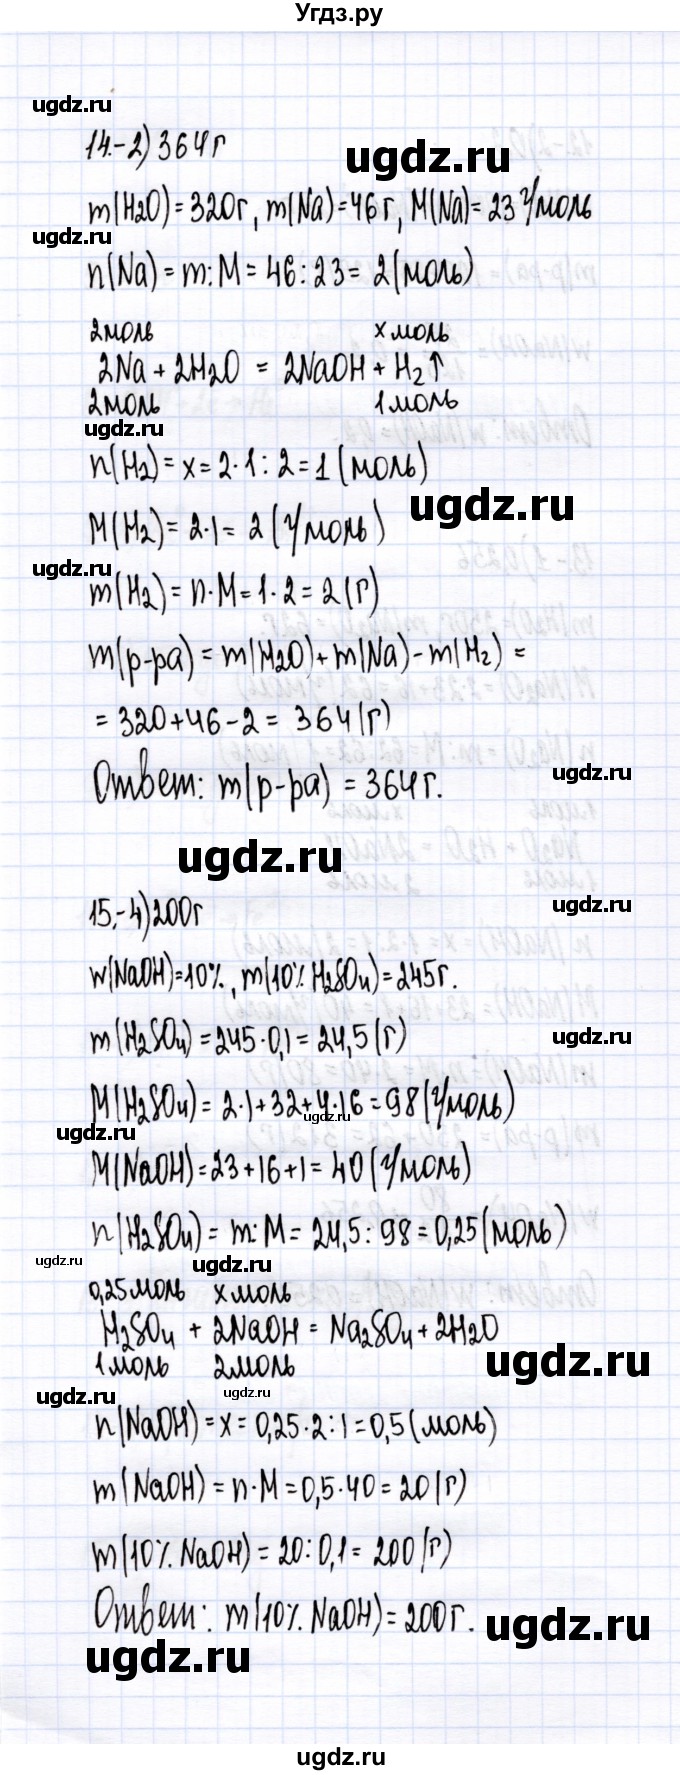 Угдз.ру
ugdz.ru
14.-2) 364 г
ugdz.ru
m(H2O) = 320г, m(Na) = 46 г, M(Na) = 23 г/моль
ugdz.ru
n(Na) = m : M = 46 : 23 = 2 (моль)
2 моль x моль
2Na + 2H2O = 2NaOH + H2↑
2 моль 1 моль
ugdz.ru
n(H2) = x = 2·1 : 2 = 1 (моль)
ugdz.ru
M(H2) = 2·1 = 2 (г/моль)
ugdz.ru
m(H2) = n·M = 1·2 = 2 (г)
m(р-ра) = m(H2O) + m(Na) - m(H2) =
= 320 + 46 - 2 = 364 (г)
ugdz.ru
Ответ: m(р-ра) = 364 г.
ugdz.ru
15.-4) 200 г
ugdz.ru
w(NaOH) = 10%, m(10% H2SO4) = 245 г.
m(H2SO4) = 245·0,1 = 24,5 (г)
ugdz.ru
M(H2SO4) = 2·1 + 32 + 4·16 = 98 (г/моль)
ugdz.ru
ugdz.ru
M(NaOH) = 23 + 16 + 1 = 40 (г/моль)
n(H2SO4) = m : M = 24,5 : 98 = 0,25 (моль)
ugdz.ru
ugdz.ru
0,25 моль x моль
H2SO4 + 2NaOH = Na2SO4 + 2H2O
1 моль 2 моль
ugdz.ru
ugdz.ru
ugdz.ru
n(NaOH) = x = 0,25·2 : 1 = 0,5 (моль)
m(NaOH) = n·M = 0,5·40 = 20 (г)
m(10% NaOH) = 20 : 0,1 = 200 (г)
Ответ: m(10% NaOH) = 200 г.
ugdz.ru
ugdz.ru
ugdz.ru